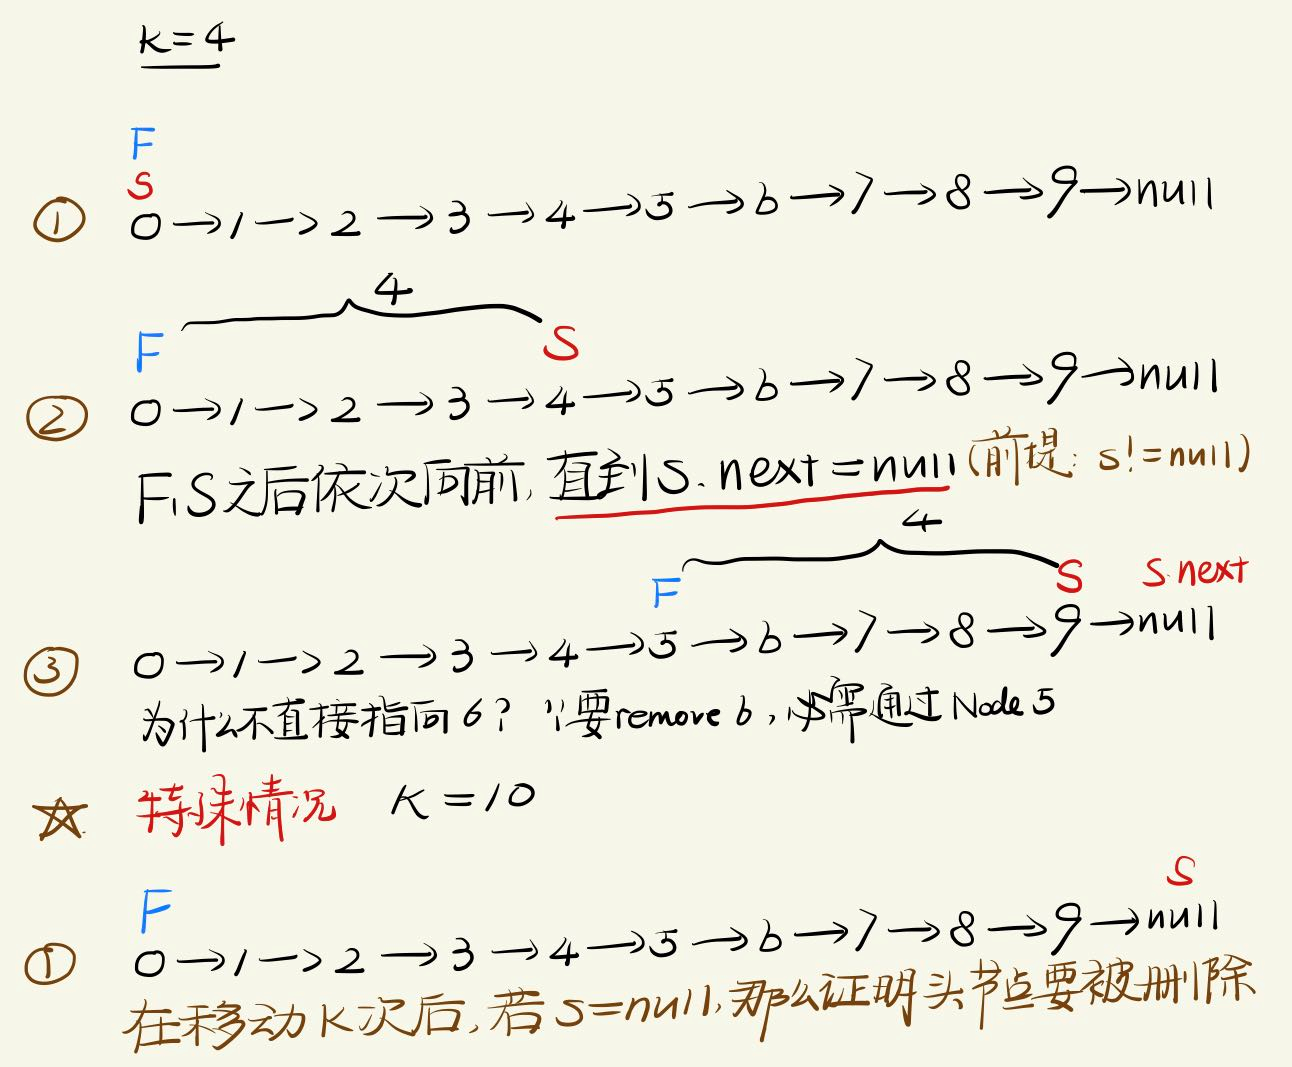 k=4
F
S
① 0→1→2→3→4→5→6→7→8→9→null
4
F S
② 0→1→2→3→4→5→6→7→8→9→null
F,S之后依次向前,直到S.next=null(前提:s!=null)
4
F S S.next
③ 0→1→2→3→4→5→6→7→8→9→null
为什么不直接指向6? ∵要remove 6,必需通过Node 5
☆ 特殊情况 K=10
F S
① 0→1→2→3→4→5→6→7→8→9→null
在移动K次后,若S=null,那么证明头节点要被删除